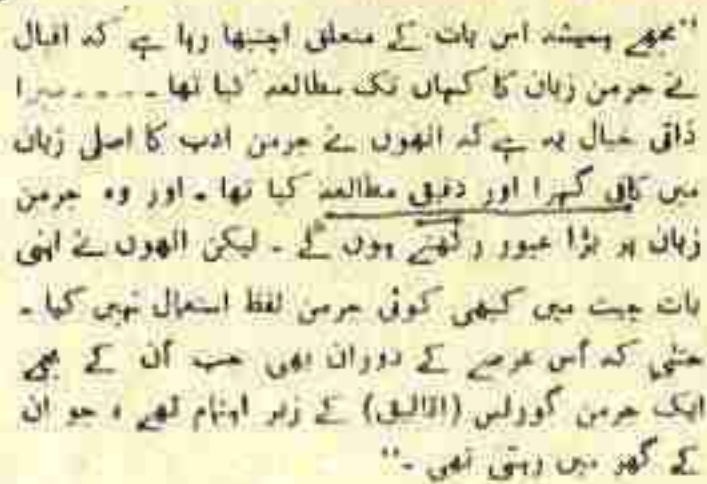 "مجھے ہمیشہ اس بات کے متعلق اچنبھا رہا ہے کہ اقبال
نے جرمن زبان کا کہاں تک مطالعہ کیا تھا ۔ ۔ ۔ ۔ ۔ میرا
ذاتی خیال یہ ہے کہ انھوں نے جرمن ادب کا اصلی زبان
میں کافی گہرا اور دقیق مطالعہ کیا تھا ۔ اور وہ جرمن
زبان پر بڑا عبور رکھتے ہوں گے ۔ لیکن انھوں نے اپنی
بات چیت میں کبھی کوئی جرمن لفظ استعمال نہیں کیا ۔
حتٰی کہ اُس عرصے کے دوران بھی جب اُن کے بچے
ایک جرمن گورنس (اتالیق) کے زیر اہتمام تھے ، جو ان
کے گھر میں رہتی تھی ۔"